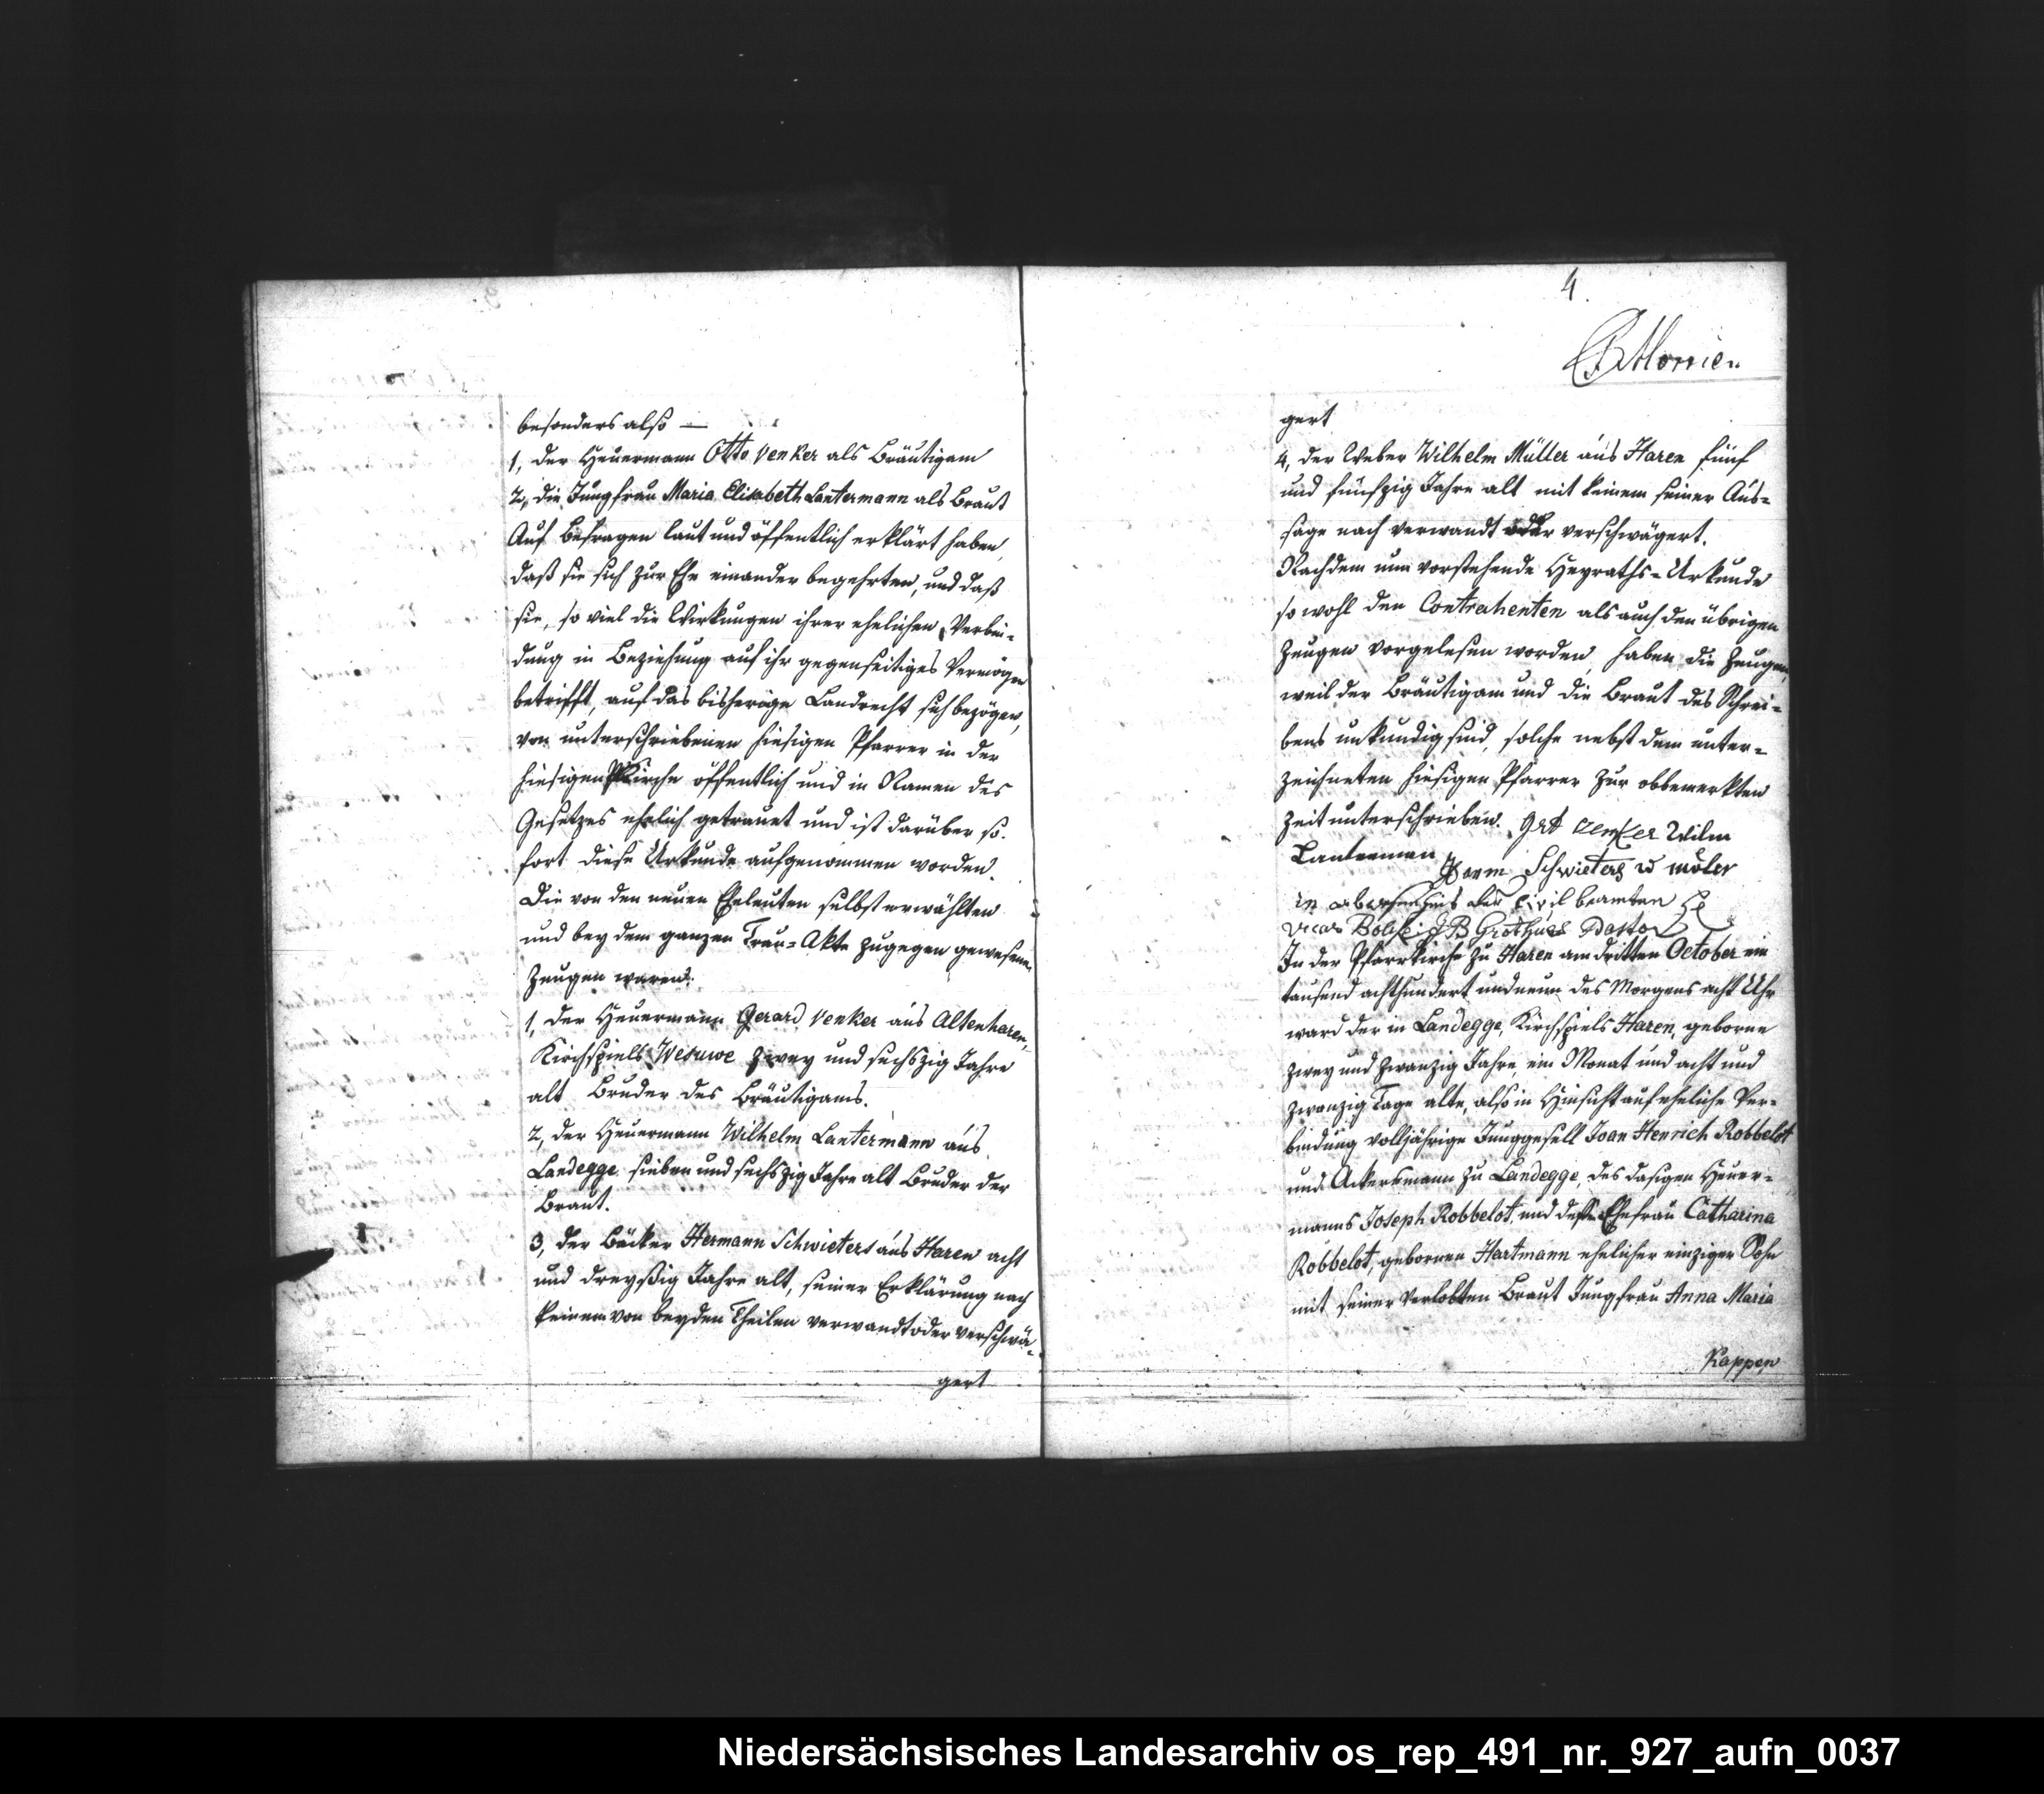 besonders also —
1, der Heuermann Otto Venker als Bräutigam
2, die Jungfrau Maria Elisabeth Lantermann als Braut
Auf Befragen laut und öffentlich erklärt haben,
daß sie sich zur Ehe einander begehrten, und daß
sie, so viel die Wirkungen ihrer ehelichen Verbin-
dung in Beziehung auf ihr gegenseitiges Vermögen
betrifft, auf das bisherige Landrecht sich bezögen,
von unterschriebenen hiesigen Pfarrer in der
hiesigen Kirche öffentlich und in Namen des
Gesetzes ehelich getrauet und ist darüber so-
fort diese Urkunde aufgenommen worden.
Die von den neuen Eheleuten selbst erwählten
und bey dem ganzen Trau-Akte zugegen gewesenen
Zeugen waren:
1, der Heuermann Gerard Venker aus Altenharen,
Kirchspiels Wesuwe zwey und sechszig Jahre
alt Bruder des Bräutigams.
2, der Heuermann Wilhelm Lantermann aus
Landegge sieben und sechszig Jahre alt Bruder der
Braut.
3, der Bäcker Hermann Schwieters aus Haren acht
und dreyßig Jahre alt, seiner Erklärung nach
keinem von beyden Theilen verwandt oder verschwä-
gert
4.
gert
4, der Weber Wilhelm Müller aus Haren fünf
und fünfzig Jahre alt mit keinem seiner Aus-
sage nach verwandt oder verschwägert.
Nachdem nun vorstehende Heyraths-Urkunde
so wohl den Contrahenten als auch den übrigen
Zeugen vorgelesen worden, haben die Zeugen,
weil der Bräutigam und die Braut des Schrei-
bens unkundig sind, solche nebst dem unter-
zeichneten hiesigen Pfarrer zur obbemerkten
Zeit unterschrieben. Grd Venker Wilm
Lanterman Herm Schwieters W möler
in abwesenheit des Civil beamten
J B Grothues Pastor
In der Pfarrkirche zu Haren am dritten October ein
tausend achthundert und neun des Morgens acht Uhr
ward der in Landegge, Kirchspiels Haren, geborne
zwey und zwanzig Jahre, ein Monat und acht und
zwanzig Tage alte, also in Hinsicht auf eheliche Ver-
bindung volljährige Junggesell Joan Henrich Robbelot
und Ackersmann zu Landegge, des dasigen Heuer-
manns Joseph Robbelot, und dessen Ehefrau Catharina
Robbelot, gebornen Hartmann ehelicher einziger Sohn
mit seiner verlobten Braut Jungfrau Anna Maria
Kappen
Niedersächsisches Landesarchiv os_rep_491_nr._927_aufn_0037